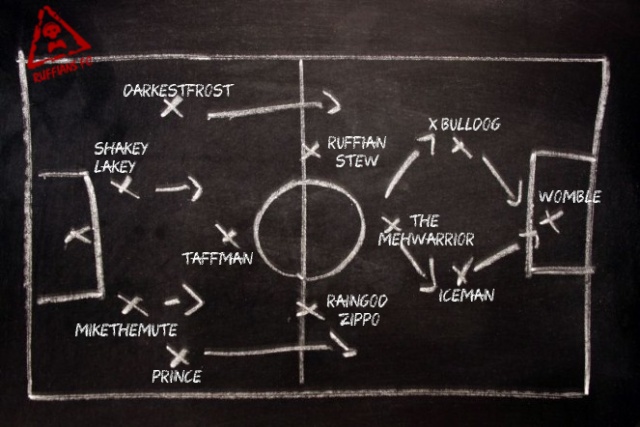 RUFFIANS FC
DARKESTFROST
SHAKEY
LAKEY
RUFFIAN
STEW
X BULLDOG
WOMBLE
THE
MEHWARRIOR
TAFFMAN
ICEMAN
RAINGOD
ZIPPO
MIKETHEMUTE
PRINCE